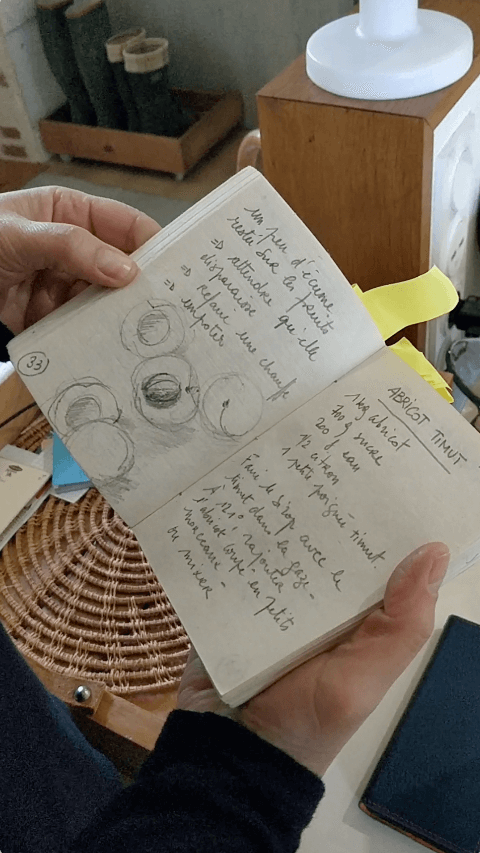 un peu d'écume
resté sur les fruits
⇒ attendre qu'elle
disparaisse
⇒ refaire une chauffe
⇒ empoter
33
ABRICOT TIMUT
1 kg abricot
700 g sucre
200 g eau
1/2 citron
1 petite poignée timut
Faire le sirop avec le
timut dans la gaze -
À 120° rajouter
l'abricot coupé en petits
morceaux -
ou mixer -